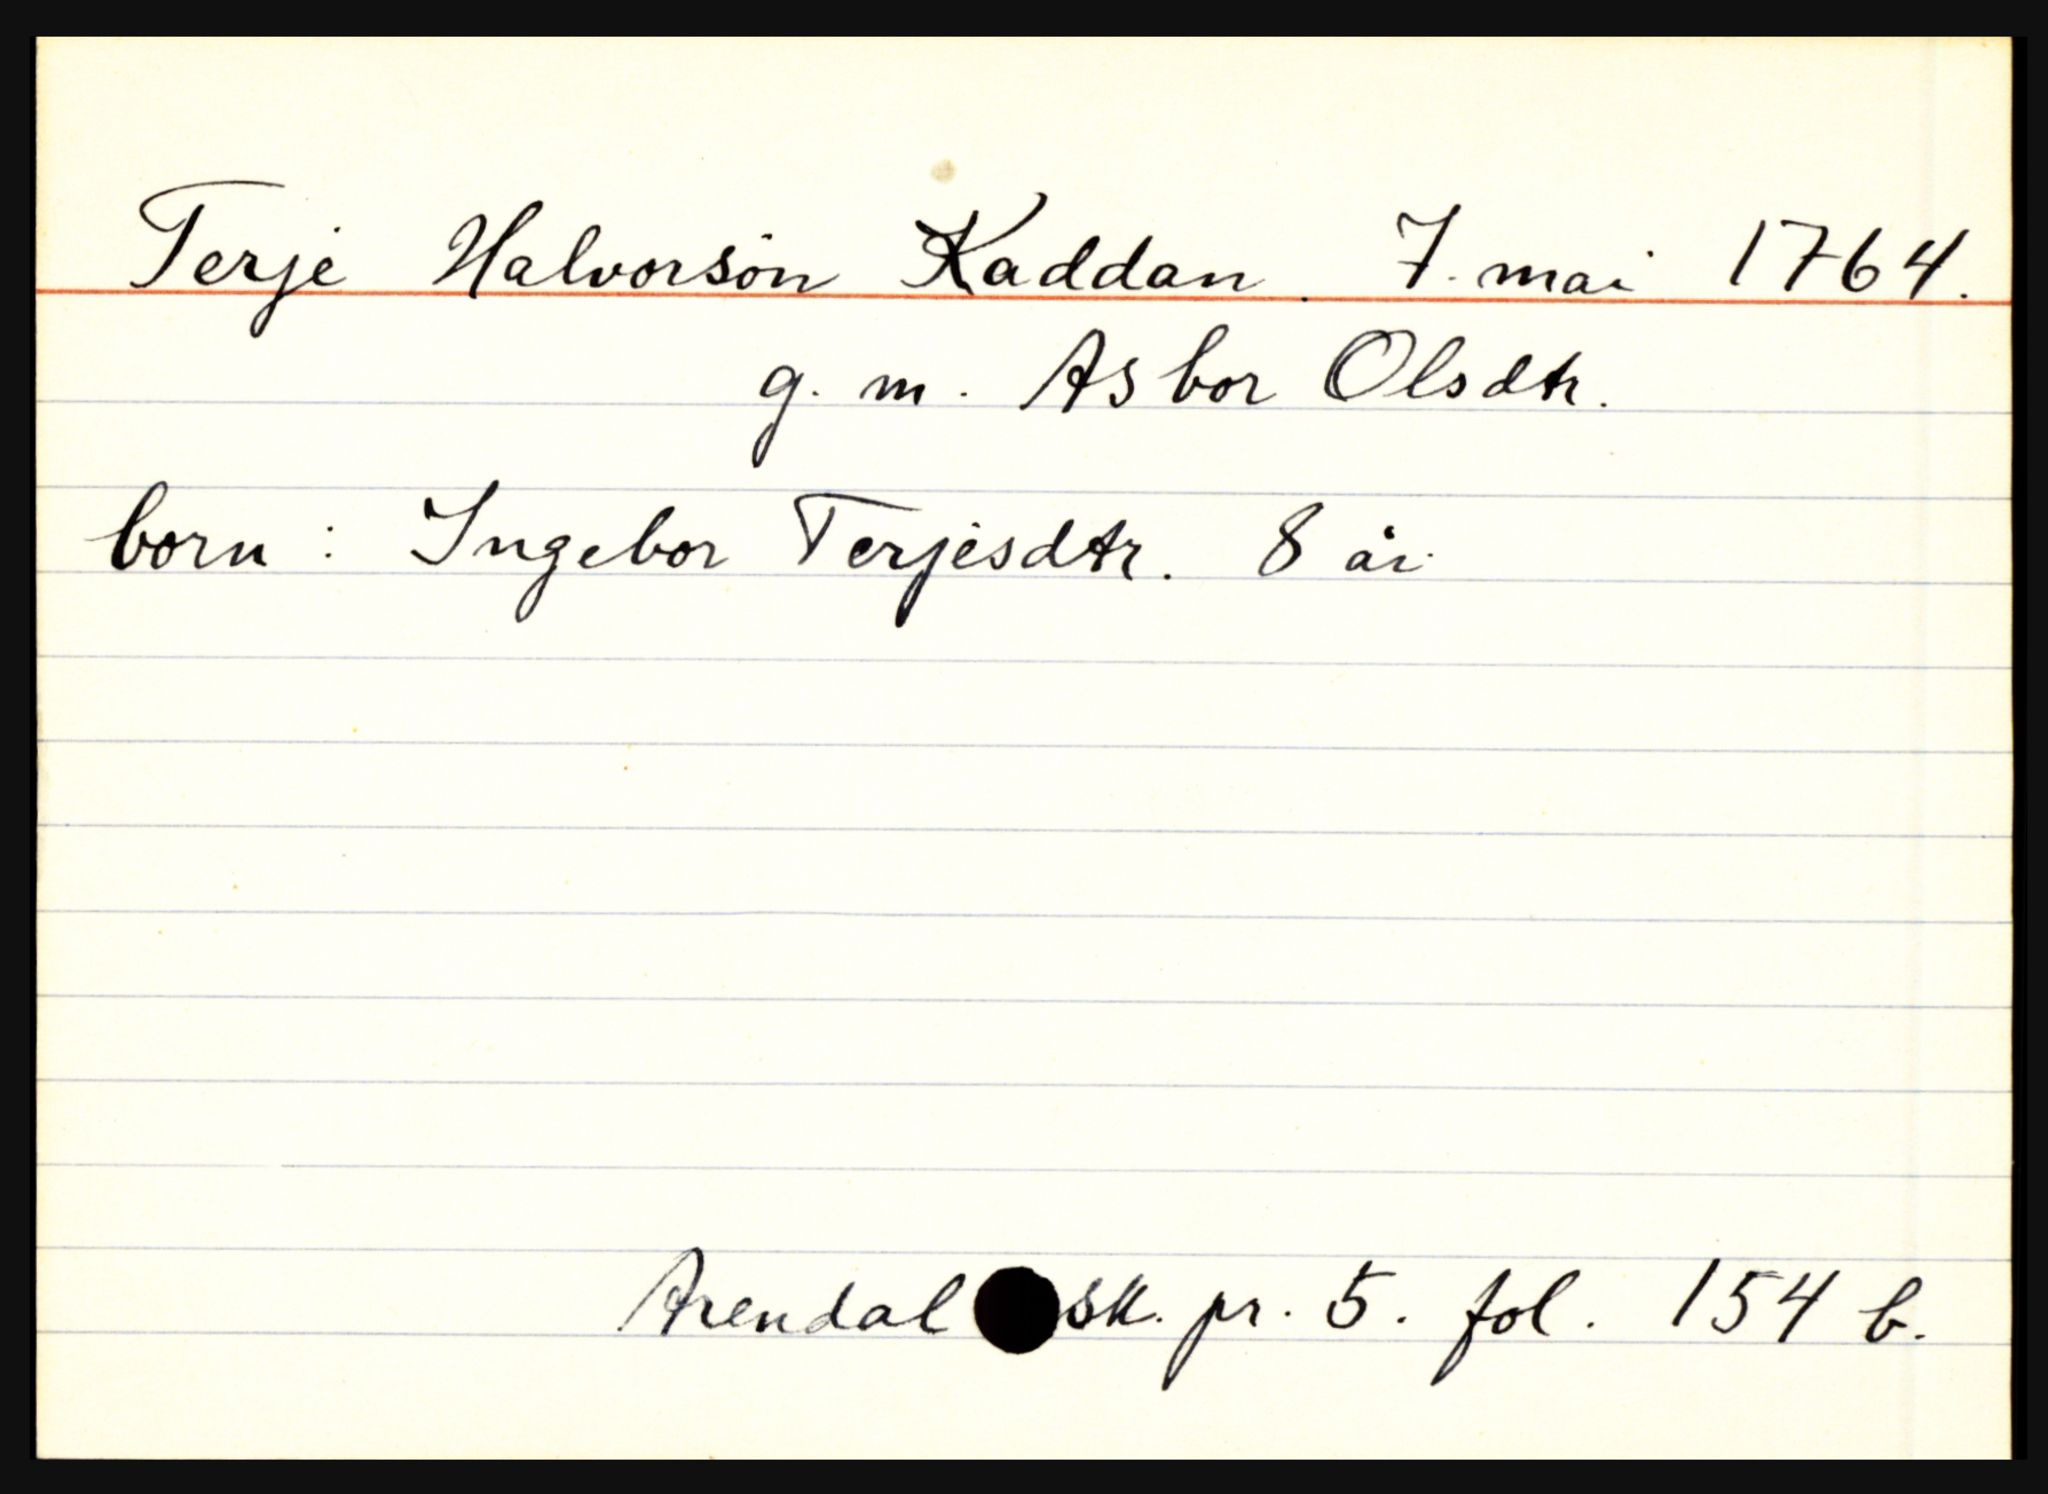 Terje Halvorsön Kaddan. 7. mai 1764.
g. m. Asbor Olsdtr.
born: Ingebor Terjesdtr. 8 år.
Arendal sk. pr. 5. fol. 154 b.